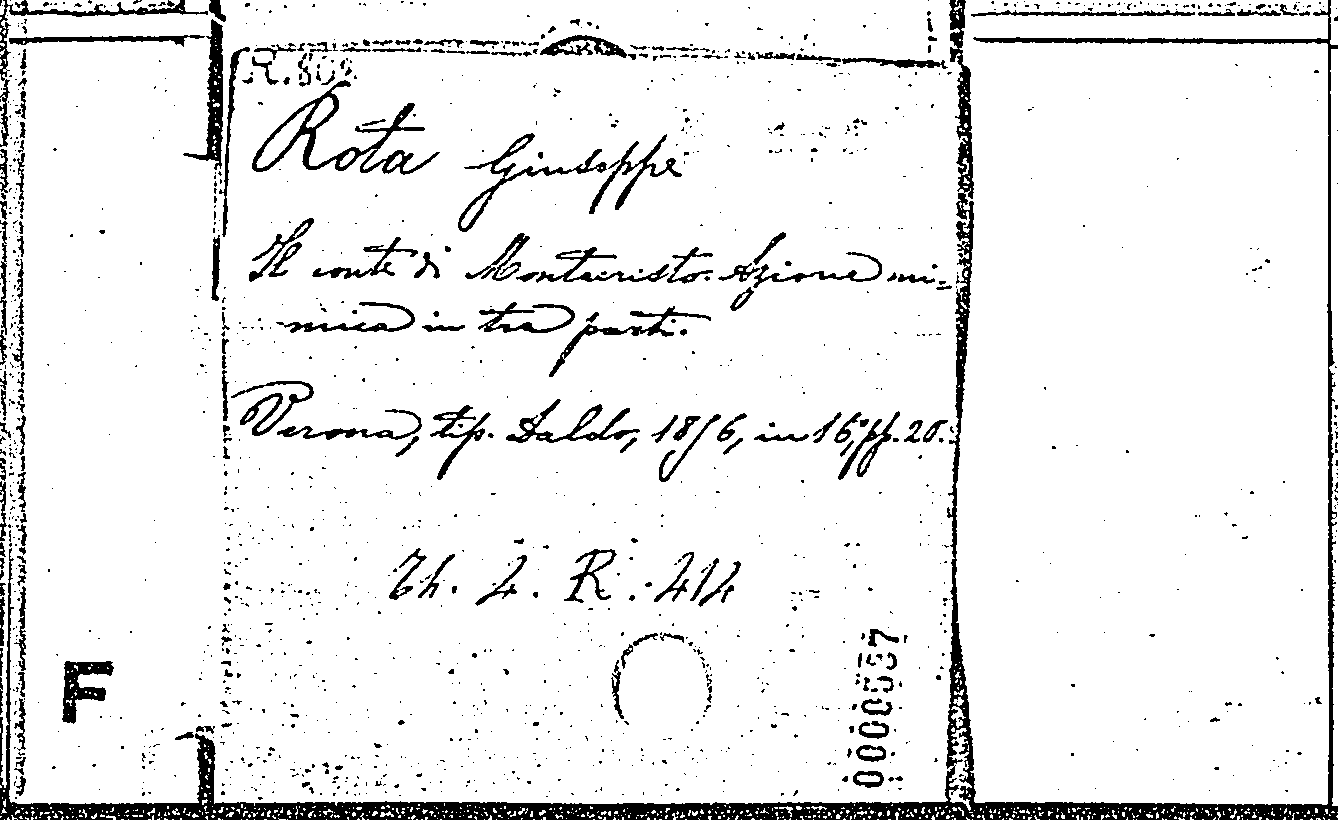 R.802
Rota Giuseppe
Il conte di Montecristo. Azione mi-
mica in tre parti.
Verona, tip. Saldo, 1856, in 16°, pp. 20.
Th. 4. R. 414
F
0000587